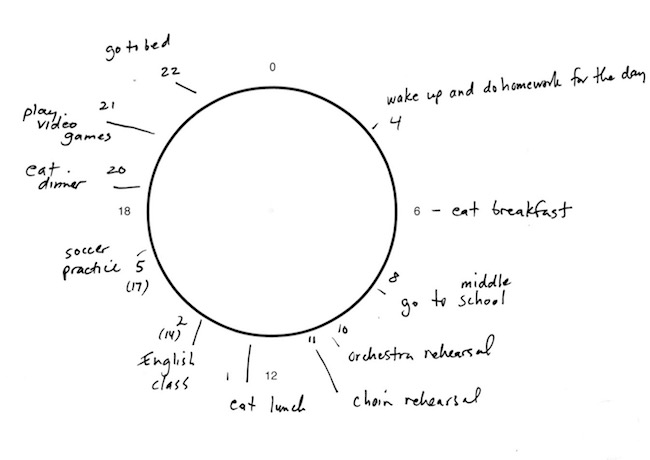 go to bed
22
0
wake up and do homework for the day
4
play
video
games
21
eat
dinner
20
18
6 - eat breakfast
soccer
practice 5
(17)
8
go to middle
school
10
orchestra rehearsal
11
choir rehearsal
2
(14)
English
class
1
12
eat lunch